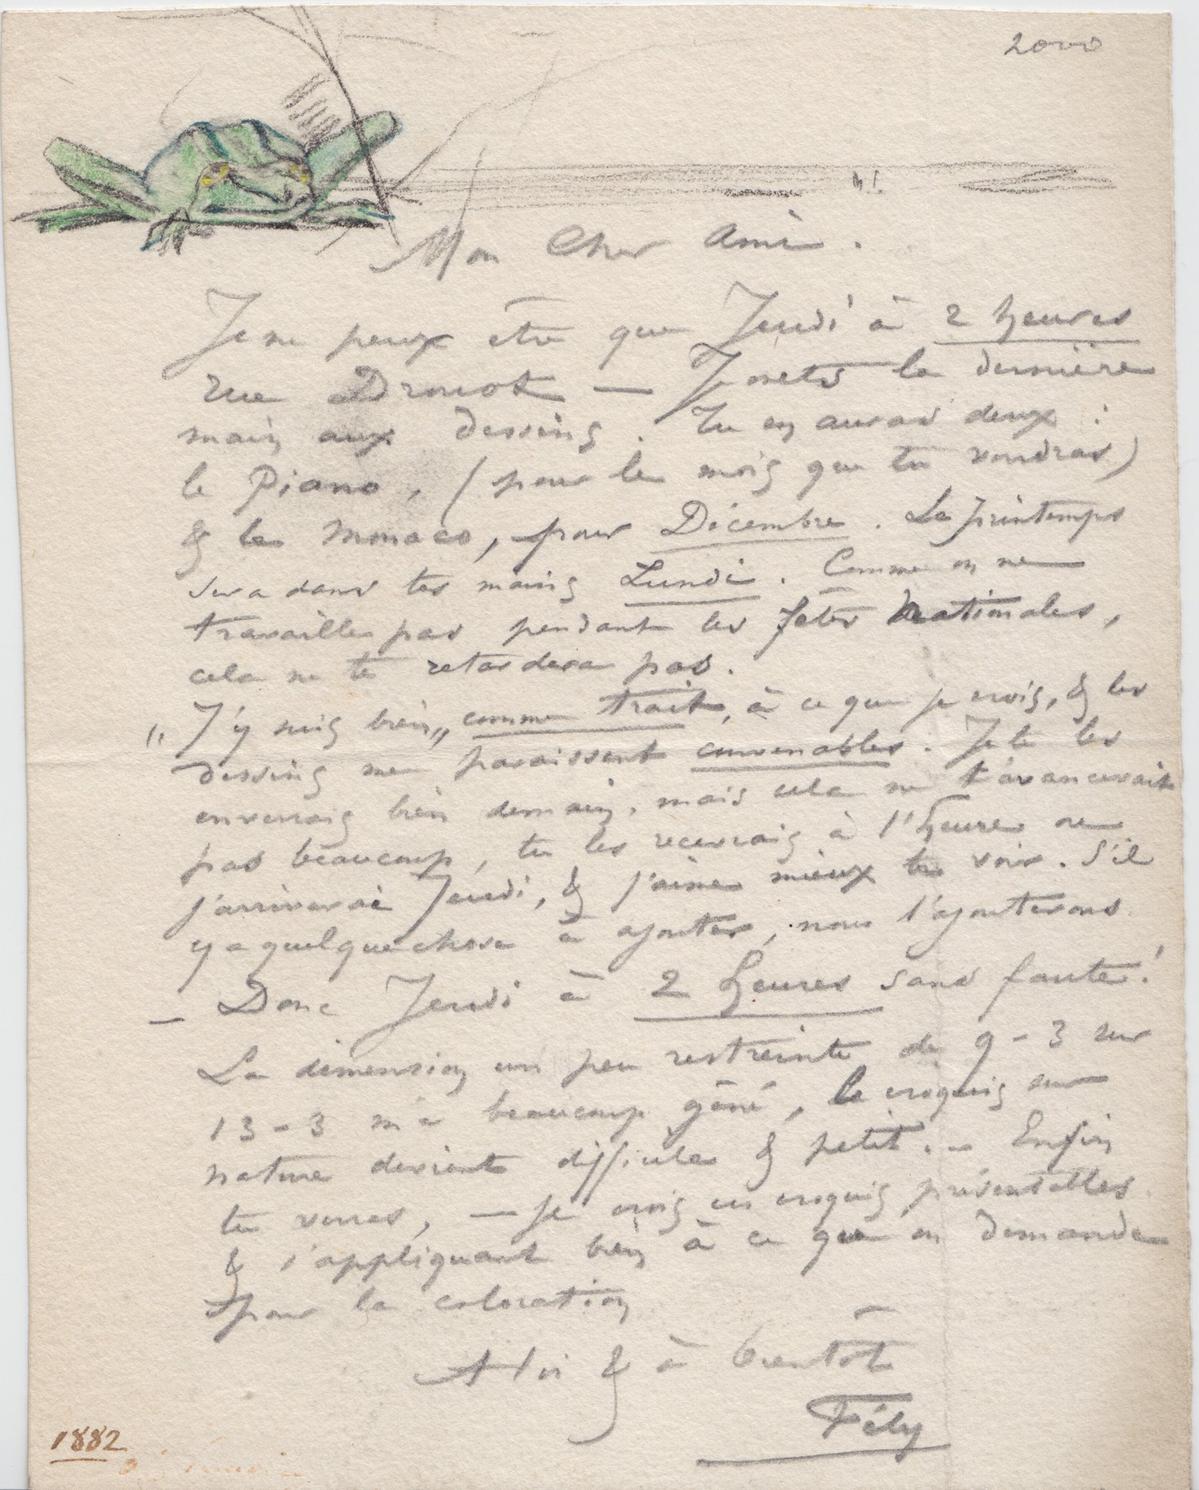 2000
Mon Cher Ami.
Je ne peux être que Jeudi à 2 heures
rue Drouot — Je mets la dernière
main aux dessins. Tu en auras deux :
le Piano, (pour le mois que tu voudras)
& le Monaco, pour Décembre. Le printemps
sera dans tes mains Lundi. Comme on ne
travaille pas pendant les fêtes Nationales,
cela ne te retardera pas.
"J'y suis bien" comme trait, à ce que je crois, & les
dessins me paraissent convenables. Je te les
enverrais bien demain, mais cela ne t'avancerait
pas beaucoup, tu les recevrais à l'heure ou
j'arriverai Jeudi, & j'aime mieux te voir. S'il
y a quelque chose à ajouter, nous l'ajouterons
— Donc Jeudi à 2 heures sans faute!
La dimension un peu restreinte de 9-3 sur
13-3 m'a beaucoup gêné, le croquis sur
nature devient difficile & petit. — Enfin
tu verras, — Je crois ces croquis présentables
& s'appliquant bien à ce que on demande
pour la coloration
A toi & à bientôt
Fély
1882